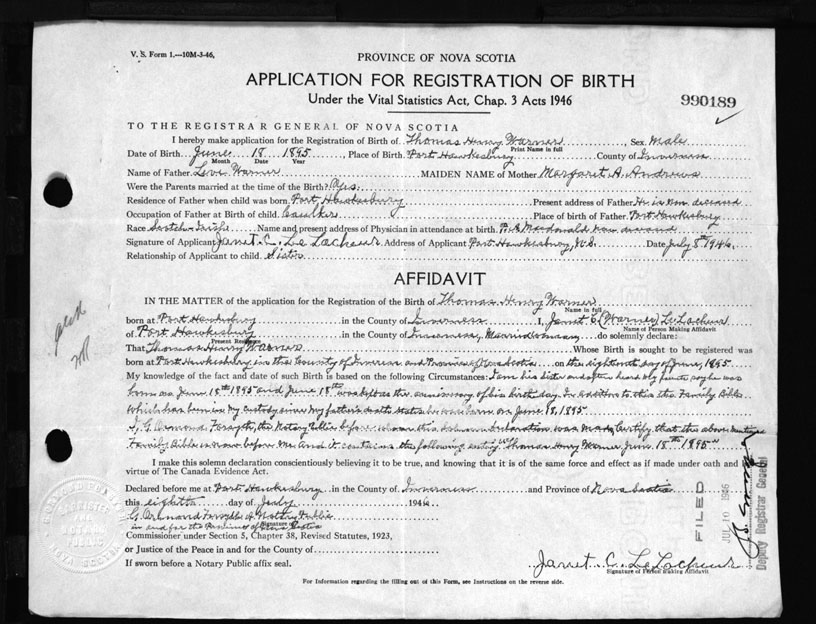 V. S. Form 1.—10M-3-46,
PROVINCE OF NOVA SCOTIA
APPLICATION FOR REGISTRATION OF BIRTH
Under the Vital Statistics Act, Chap. 3 Acts 1946
990189
TO THE REGISTRAR GENERAL OF NOVA SCOTIA
I hereby make application for the Registration of Birth of Thomas Henry Warner Sex Male
Print Name in full
Date of Birth June 18 1895, Place of Birth Port Hawkesbury County of Inverness
Month Date Year
Name of Father Levi Warner MAIDEN NAME of Mother Margaret A. Andrews
Were the Parents married at the time of the Birth? Yes
Residence of Father when child was born Port Hawkesbury Present address of Father He is now deceased
Occupation of Father at Birth of child Caulker Place of birth of Father Port Hawkesbury
Race Scotch-Irish Name and present address of Physician in attendance at birth P. A. Macdonald now deceased
Signature of Applicant Janet C. LeLacheur Address of Applicant Port Hawkesbury, N.S. Date July 8th 1946
Relationship of Applicant to child Sister
AFFIDAVIT
IN THE MATTER of the application for the Registration of the Birth of Thomas Henry Warner
Name in full
born at Port Hawkesbury in the County of Inverness I, Janet C (Warner) LeLacheur
Name of Person Making Affidavit
of Port Hawkesbury in the County of Inverness, Married woman, do solemnly declare:
Present Residence
That Thomas Henry Warner Whose Birth is sought to be registered was
born at Port Hawkesbury in the County of Inverness and Province of Nova Scotia on the eighteenth day of June, 1895
My knowledge of the fact and date of such Birth is based on the following Circumstances: I am his sister and often heard my parents say he was
born on June 18th 1895 and June 18th was kept as the anniversary of his birthday. In addition to this the Family Bible
which has been in my custody since my father's death states he was born on June 18, 1895
I, G. Ormond Forsyth, the Notary Public before whom this solemn declaration was made, certify that the above mentioned
Family Bible is now before me and it contains the following entry "Thomas Henry Warner June 18th 1895"
I make this solemn declaration conscientiously believing it to be true, and knowing that it is of the same force and effect as if made under oath and by
virtue of The Canada Evidence Act.
Declared before me at Port Hawkesbury in the County of Inverness and Province of Nova Scotia
this eighth day of July 1946
G. Ormond Forsyth A Notary Public
Signature of
in and for the Province of Nova Scotia
Commissioner under Section 5, Chapter 38, Revised Statutes, 1923,
or Justice of the Peace in and for the County of
If sworn before a Notary Public affix seal.
Janet C. LeLacheur
Signature of Person Making Affidavit
For Information regarding the filling out of this Form, see Instructions on the reverse side.
FILED
JUL 10 1946
Deputy Registrar General